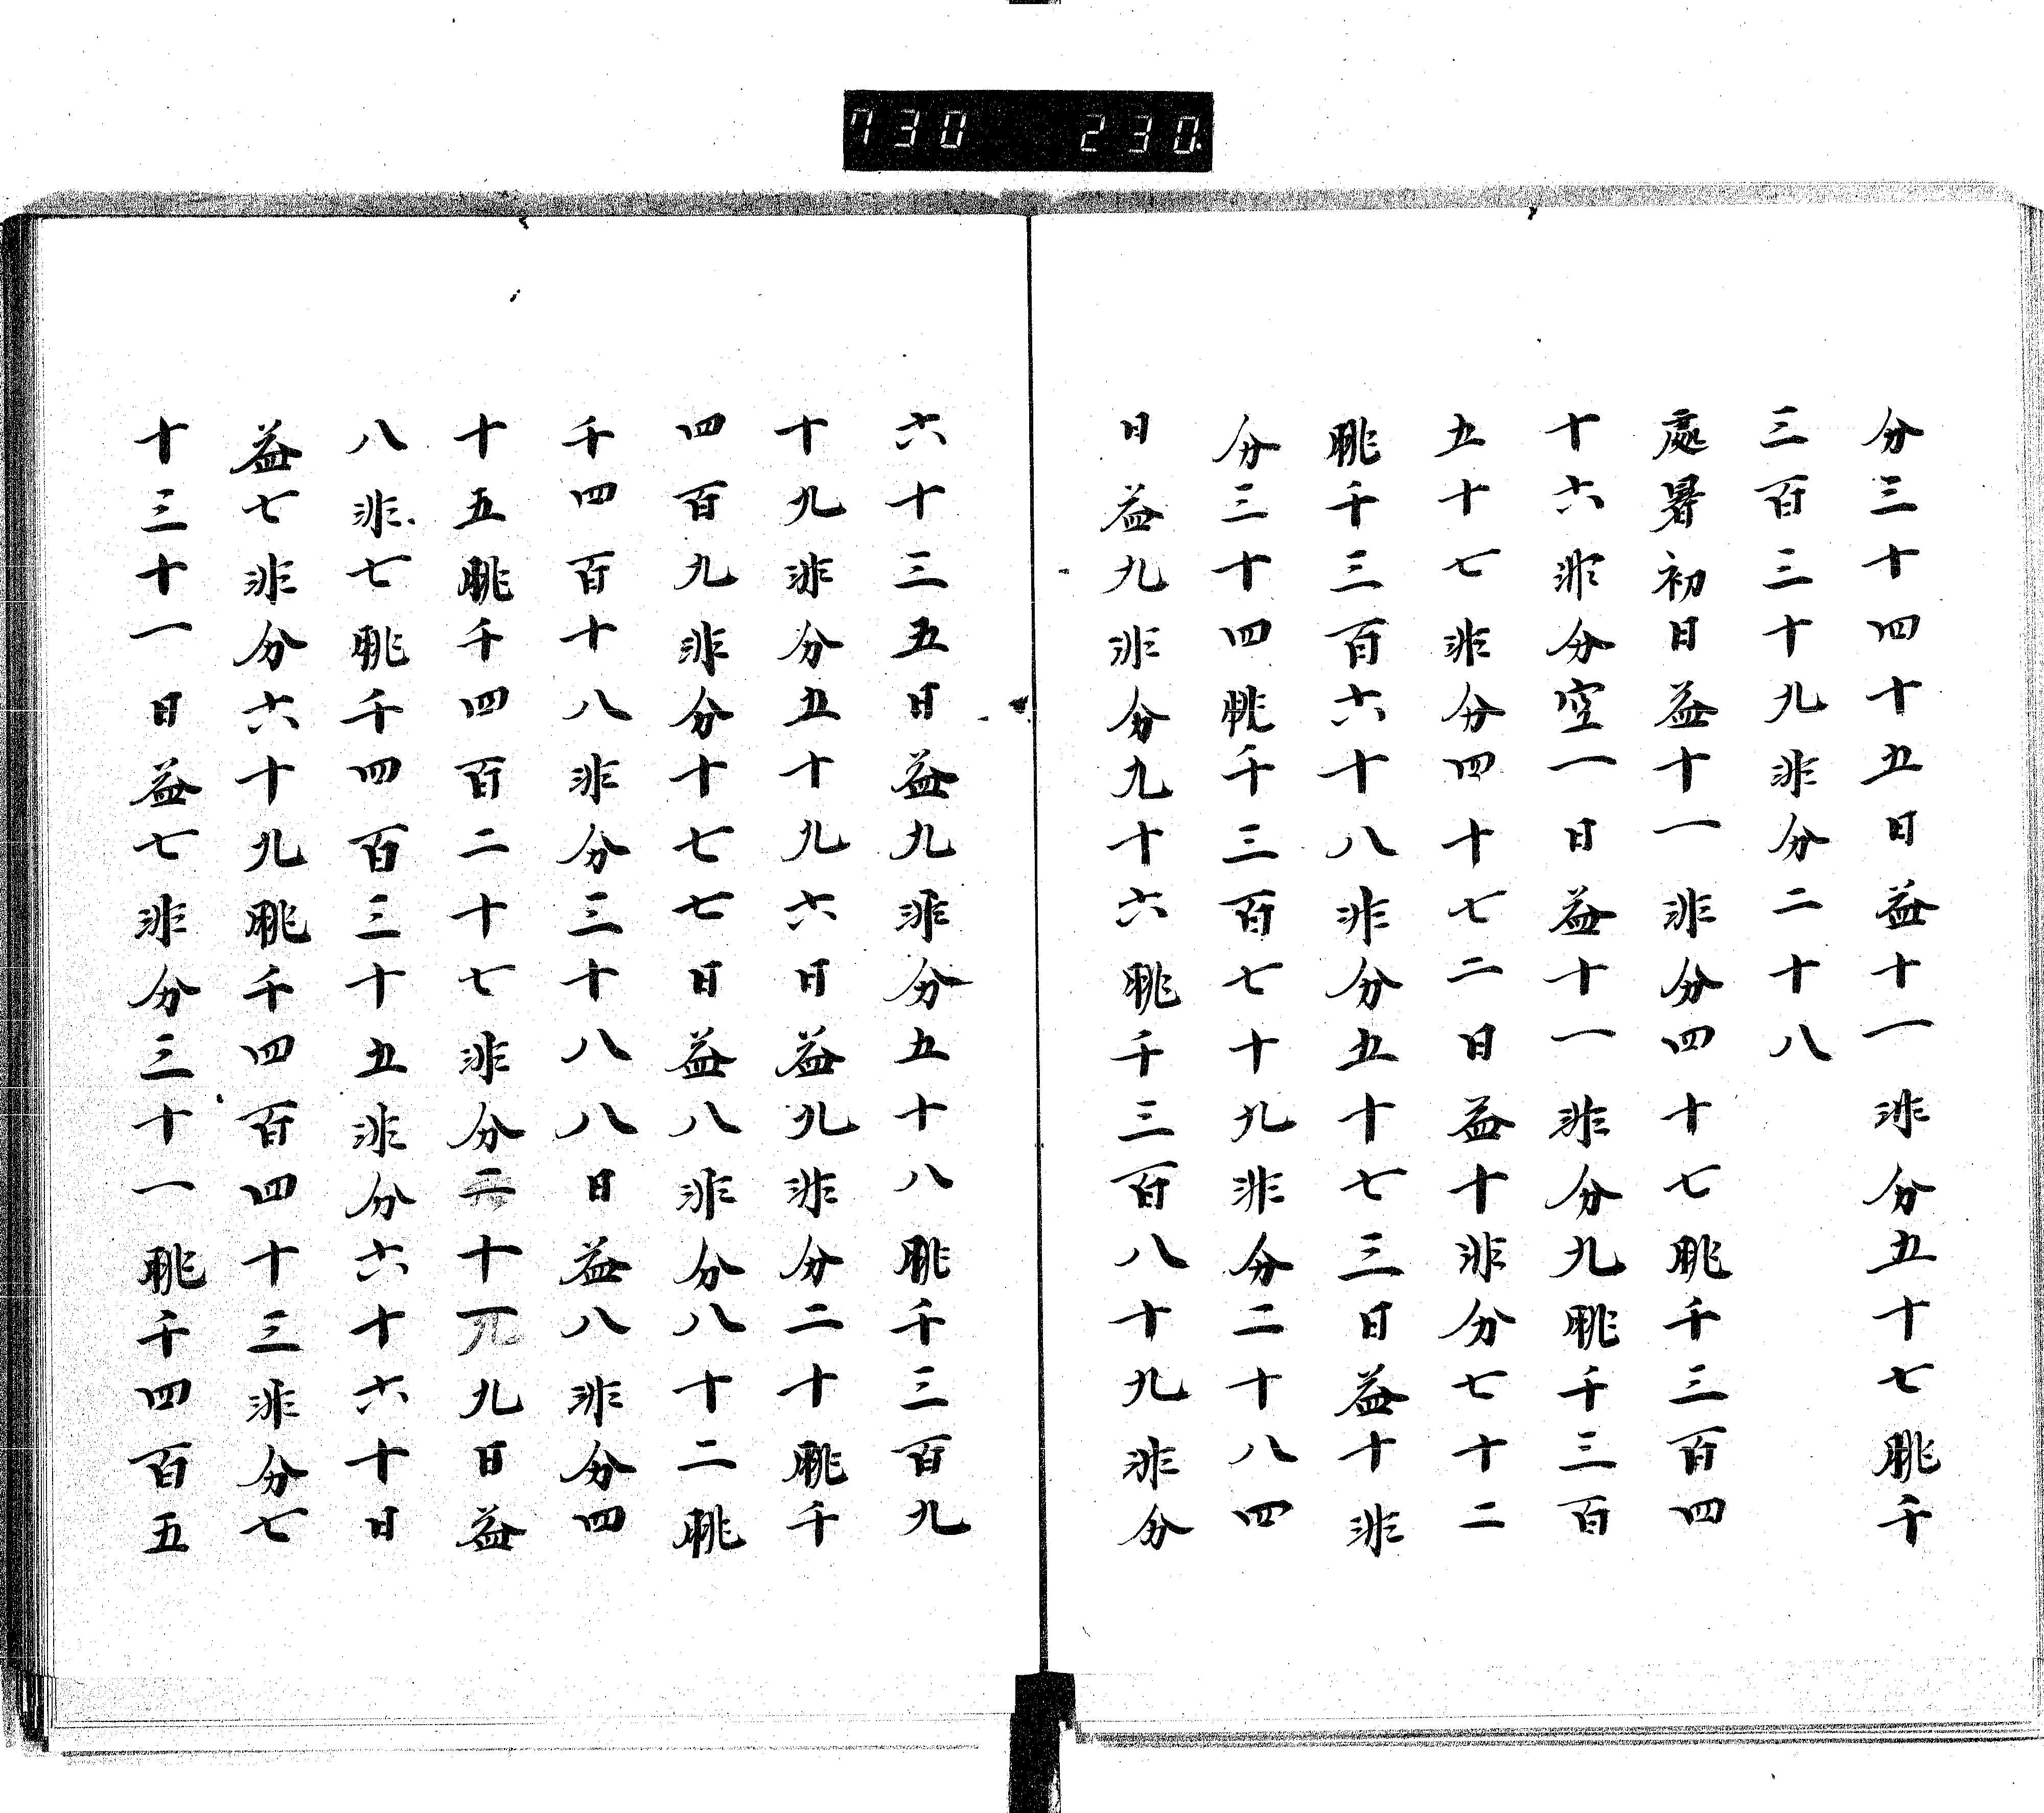 730 230
分三十四十五日益十一非分五十七朓千
三百三十九非分二十八
處暑初日益十一非分四十七朓千三百四
十六非分空一日益十一非分九朓千三百
五十七非分四十七二日益十非分七十二
朓千三百六十八非分五十七三日益十非
分三十四朓千三百七十九非分二十八四
日益九非分九十六朓千三百八十九非分
六十三五日益九非分五十八朓千三百九
十九非分五十九六日益九非分二十朓千
四百九非分十七七日益八非分八十二朓
千四百十八非分三十八八日益八非分四
十五朓千四百二十七非分二十九日益
八非七朓千四百三十五非分六十六十日
益七非分六十九朓千四百四十三非分七
十三十一日益七非分三十一朓千四百五